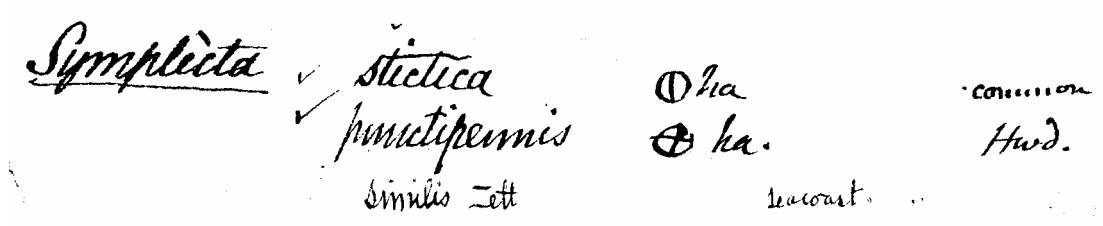 Symplècta ✓ stictica ⦶ ha common
✓ punctipennis ⊕ ha. Hwd.
similis Zett seacoast.